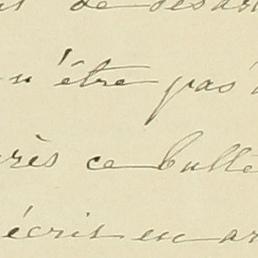 de désar
n'être pas
rès ce bulle
écrit en ar